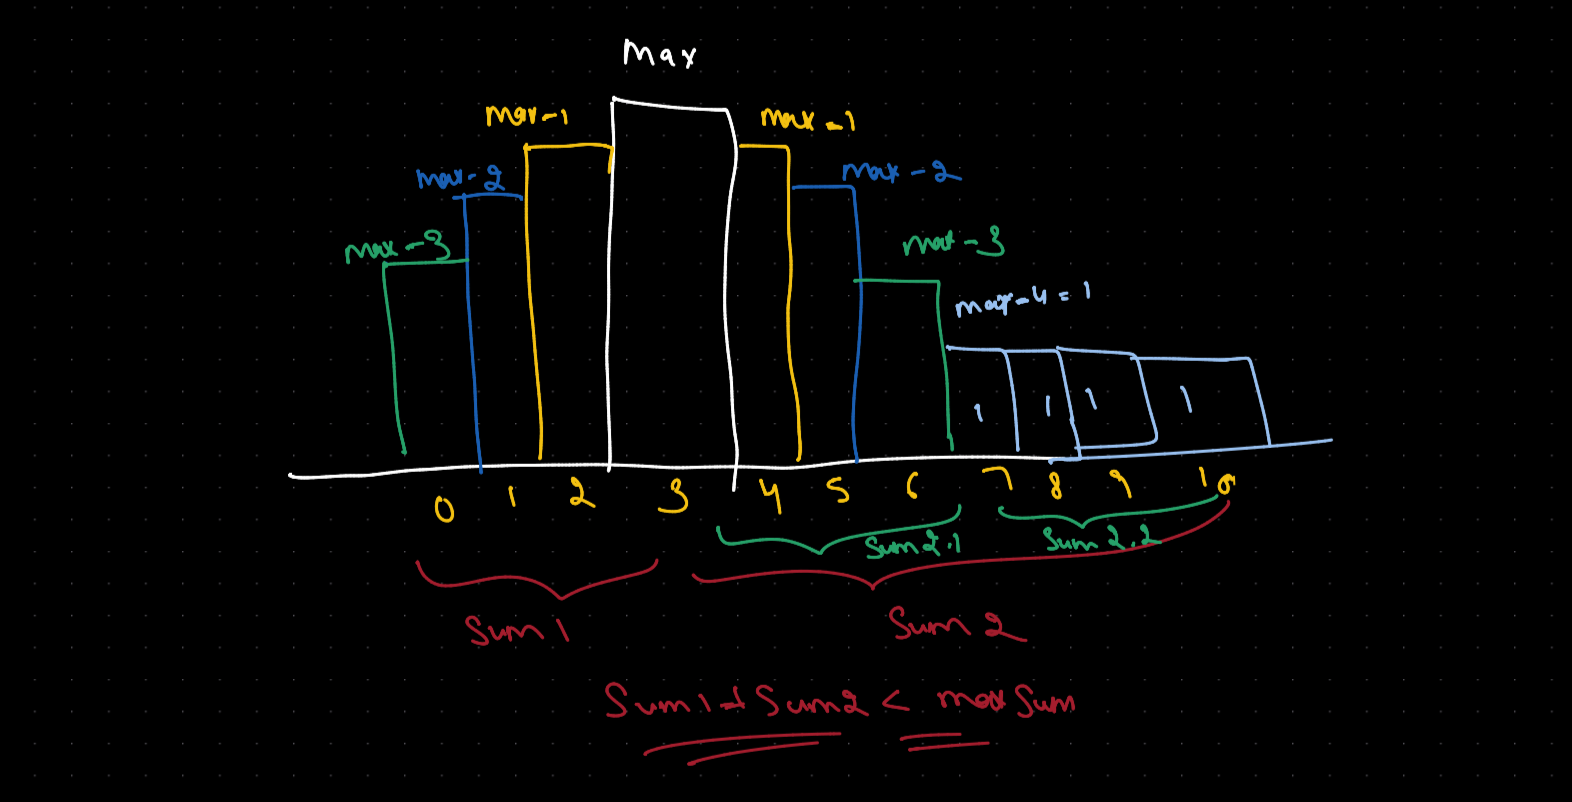 Max
max-1
max-1
max-2
max-2
max-3
max-3
max-4=1
1 1 1 1
0 1 2 3 4 5 6 7 8 9 10
Sum2.1
Sum2.2
Sum1
Sum2
Sum1+Sum2 < maxSum